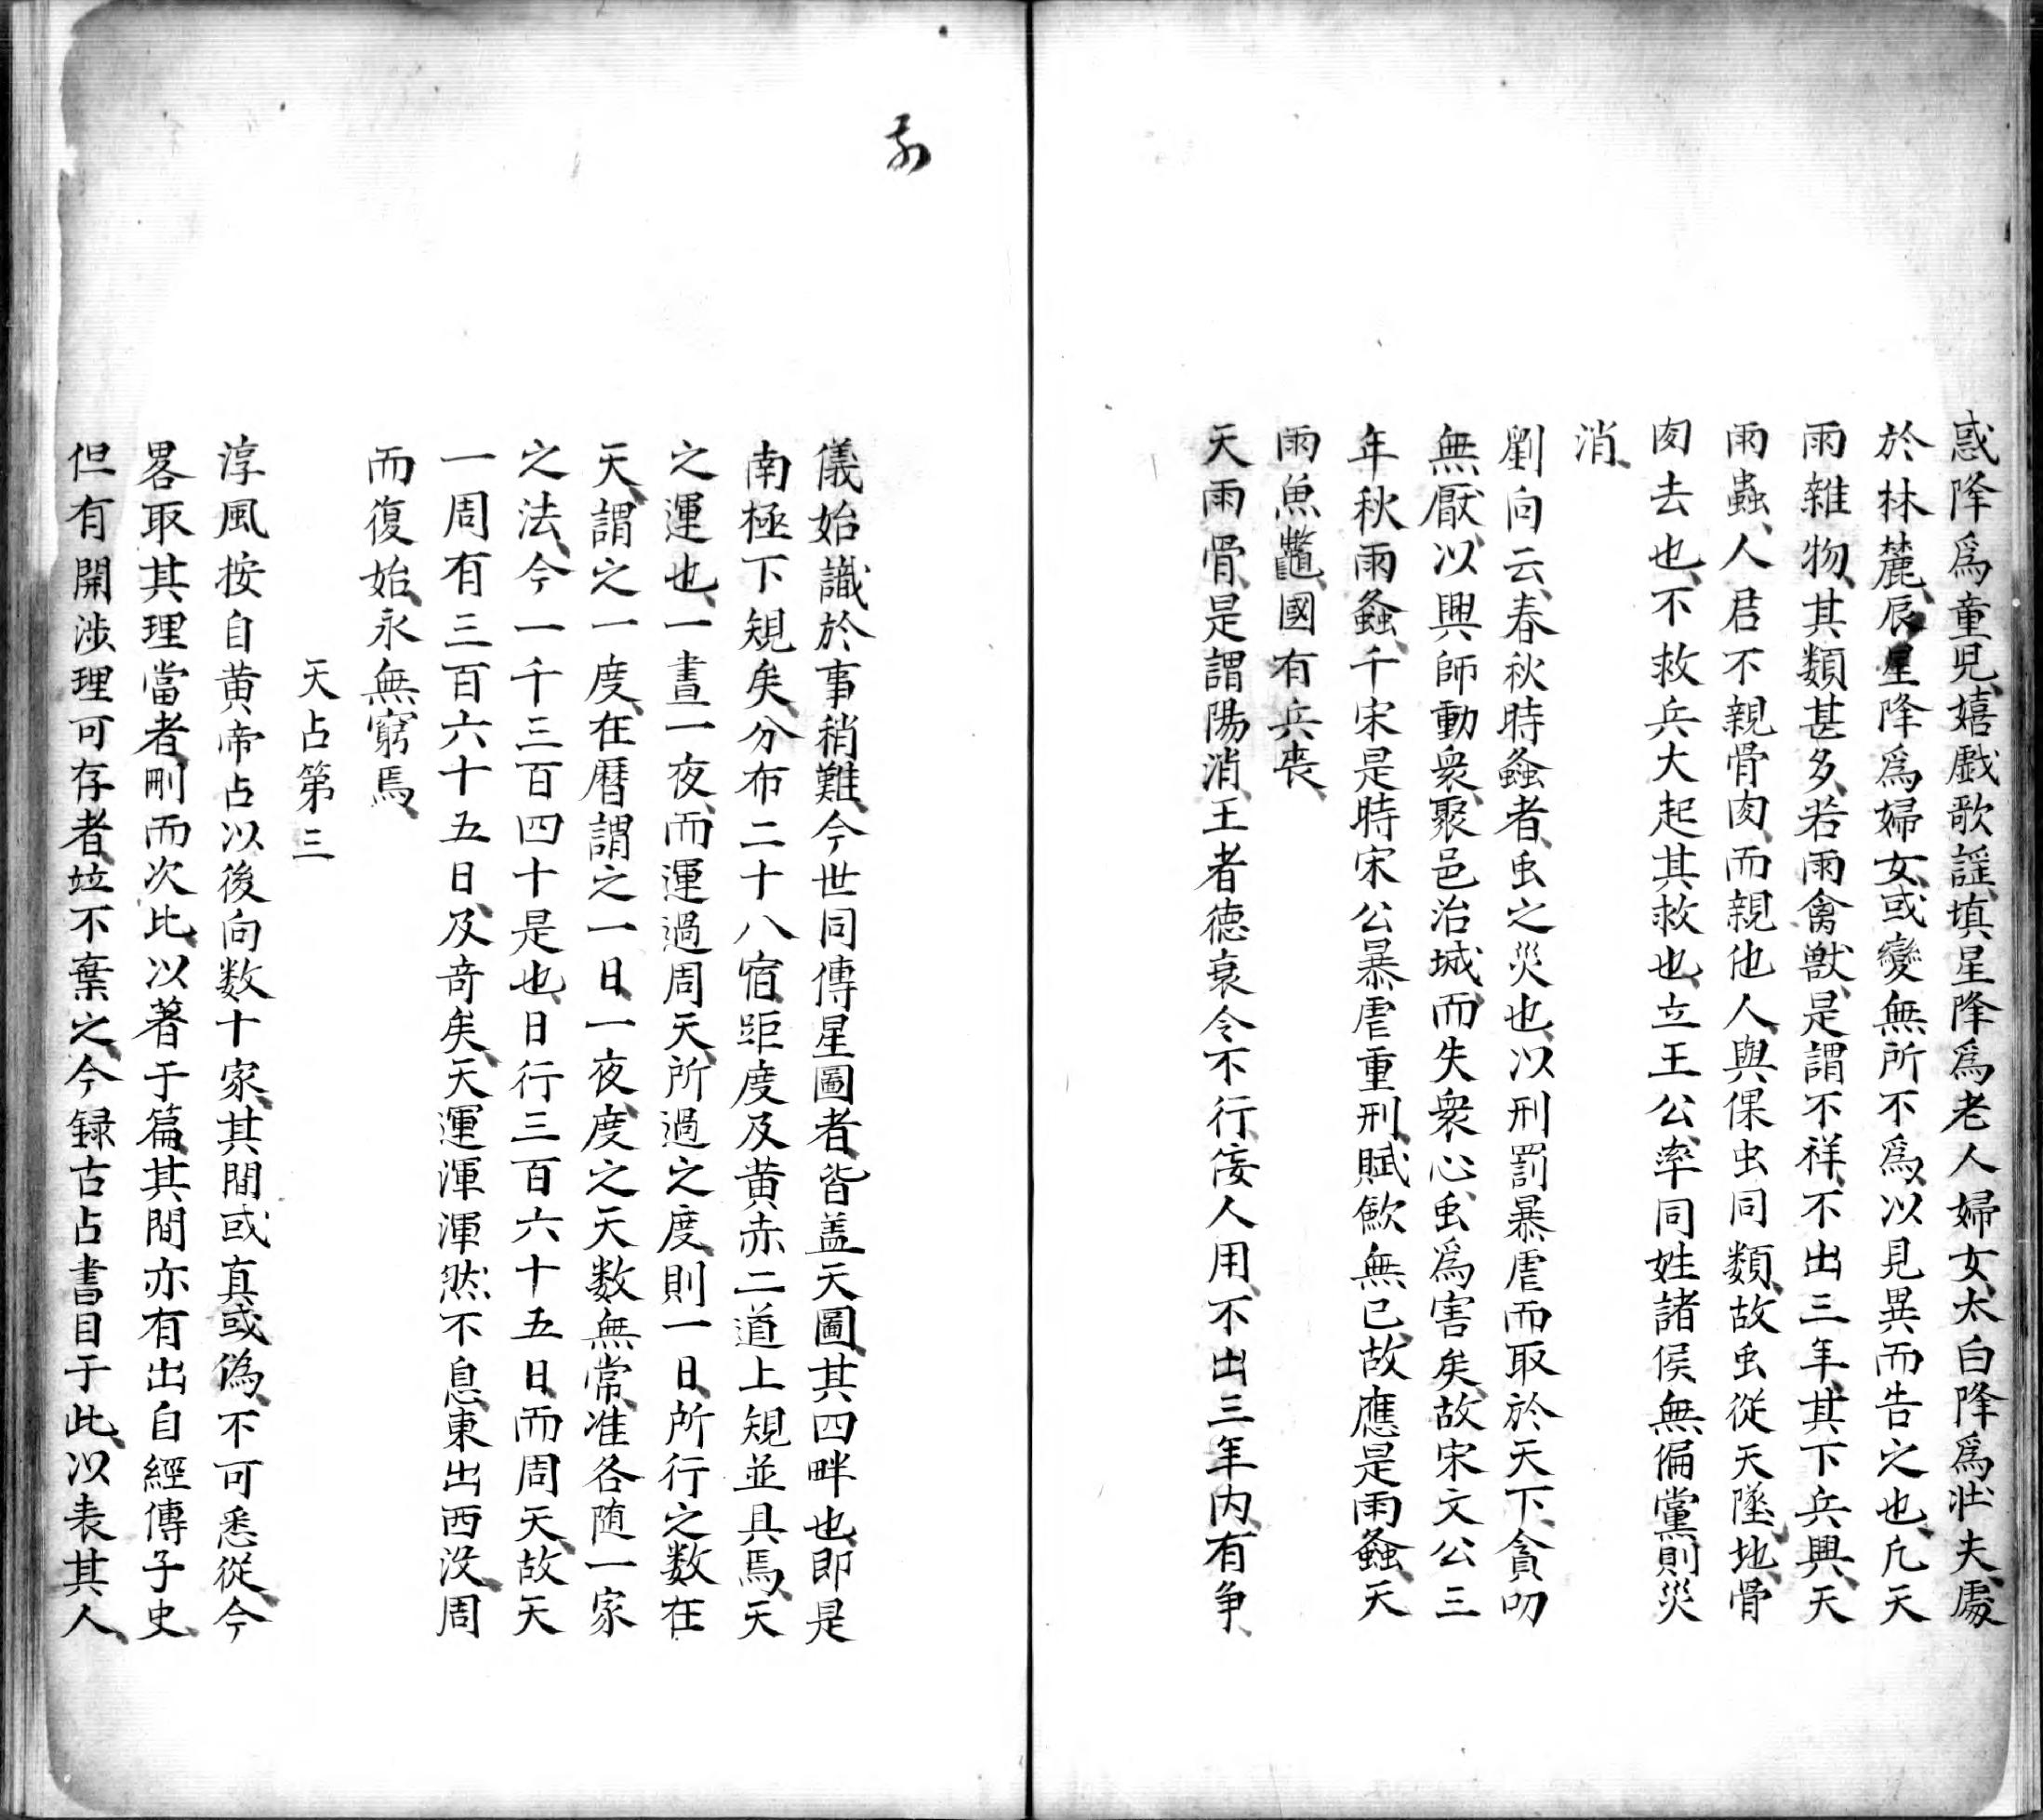 惑降爲童兒、嬉戯歌謡、填星降爲老人婦女、太白降爲壮夫、處
於林麓、辰星降爲婦女、或變無所不爲、以見異而告之也、凡天
雨雜物、其類甚多、若雨禽獣、是謂不祥、不出三年、其下兵興、天
雨蟲、人君不親骨肉、而親他人、與倮虫同類、故虫從天墜地、骨
肉去也、不救兵大起、其救也、立王公、率同姓諸侯、無偏黨則災
消、
劉向云、春秋時螽者、虫之災也、以刑罰暴虐而取於天下、貪叨
無厭、以興師動衆、聚邑治城、而失衆心、虫爲害矣、故宋文公三
年秋雨螽、千宋是時宋公暴虐重刑、賦歛無已、故應是雨螽、天
雨魚鼈、國有兵喪、
天雨骨、是謂陽消、王者徳衰令不行、佞人用、不出三年内、有争、
儀始識於事稍難、今世同傳星圖者、皆盖天圖、其四畔也、即是
南極下規矣、分布二十八宿距度及黄赤二道上規並具焉、天
之運也、一晝一夜、而運過周天、所過之度、則一日、所行之数在
天、謂之一度、在暦謂之一日、一夜、度之天数無常准、各随一家
之法、今一千三百四十是也、日行三百六十五日、而周天、故天
一周有三百六十五日、及竒矣、天運渾渾然不息、東出西没、周
而復始、永無窮焉、
天占第三
淳風按自黄帝占以後向数十家、其間或真或偽、不可悉從、今
畧取其理當者、刪而次比、以著于篇、其間亦有出自經傳子史、
但有開渉理可存者、竝不棄之、今録古占書目于此、以表其人、